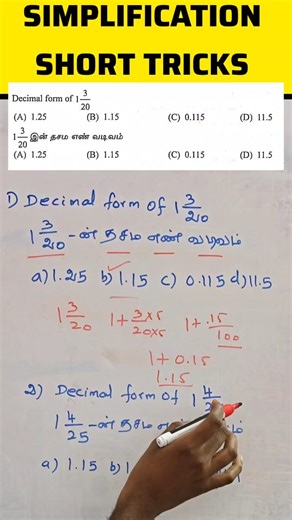 SIMPLIFICATION
SHORT TRICKS
Decimal form of 1 3/20
(A) 1.25 (B) 1.15 (C) 0.115 (D) 11.5
1 3/20 இன் தசம எண் வடிவம்
(A) 1.25 (B) 1.15 (C) 0.115 (D) 11.5
1) Decimal form of 1 3/20
1 3/20 -ன் தசம எண் வடிவம்
a) 1.25 b) 1.15 c) 0.115 d) 11.5
1 3/20 1 + 3×5/20×5 1 + .15/100
1 + 0.15
1.15
2) Decimal form of 1 4/2
1 4/25 -ன் தசம
a) 1.15 b) 1